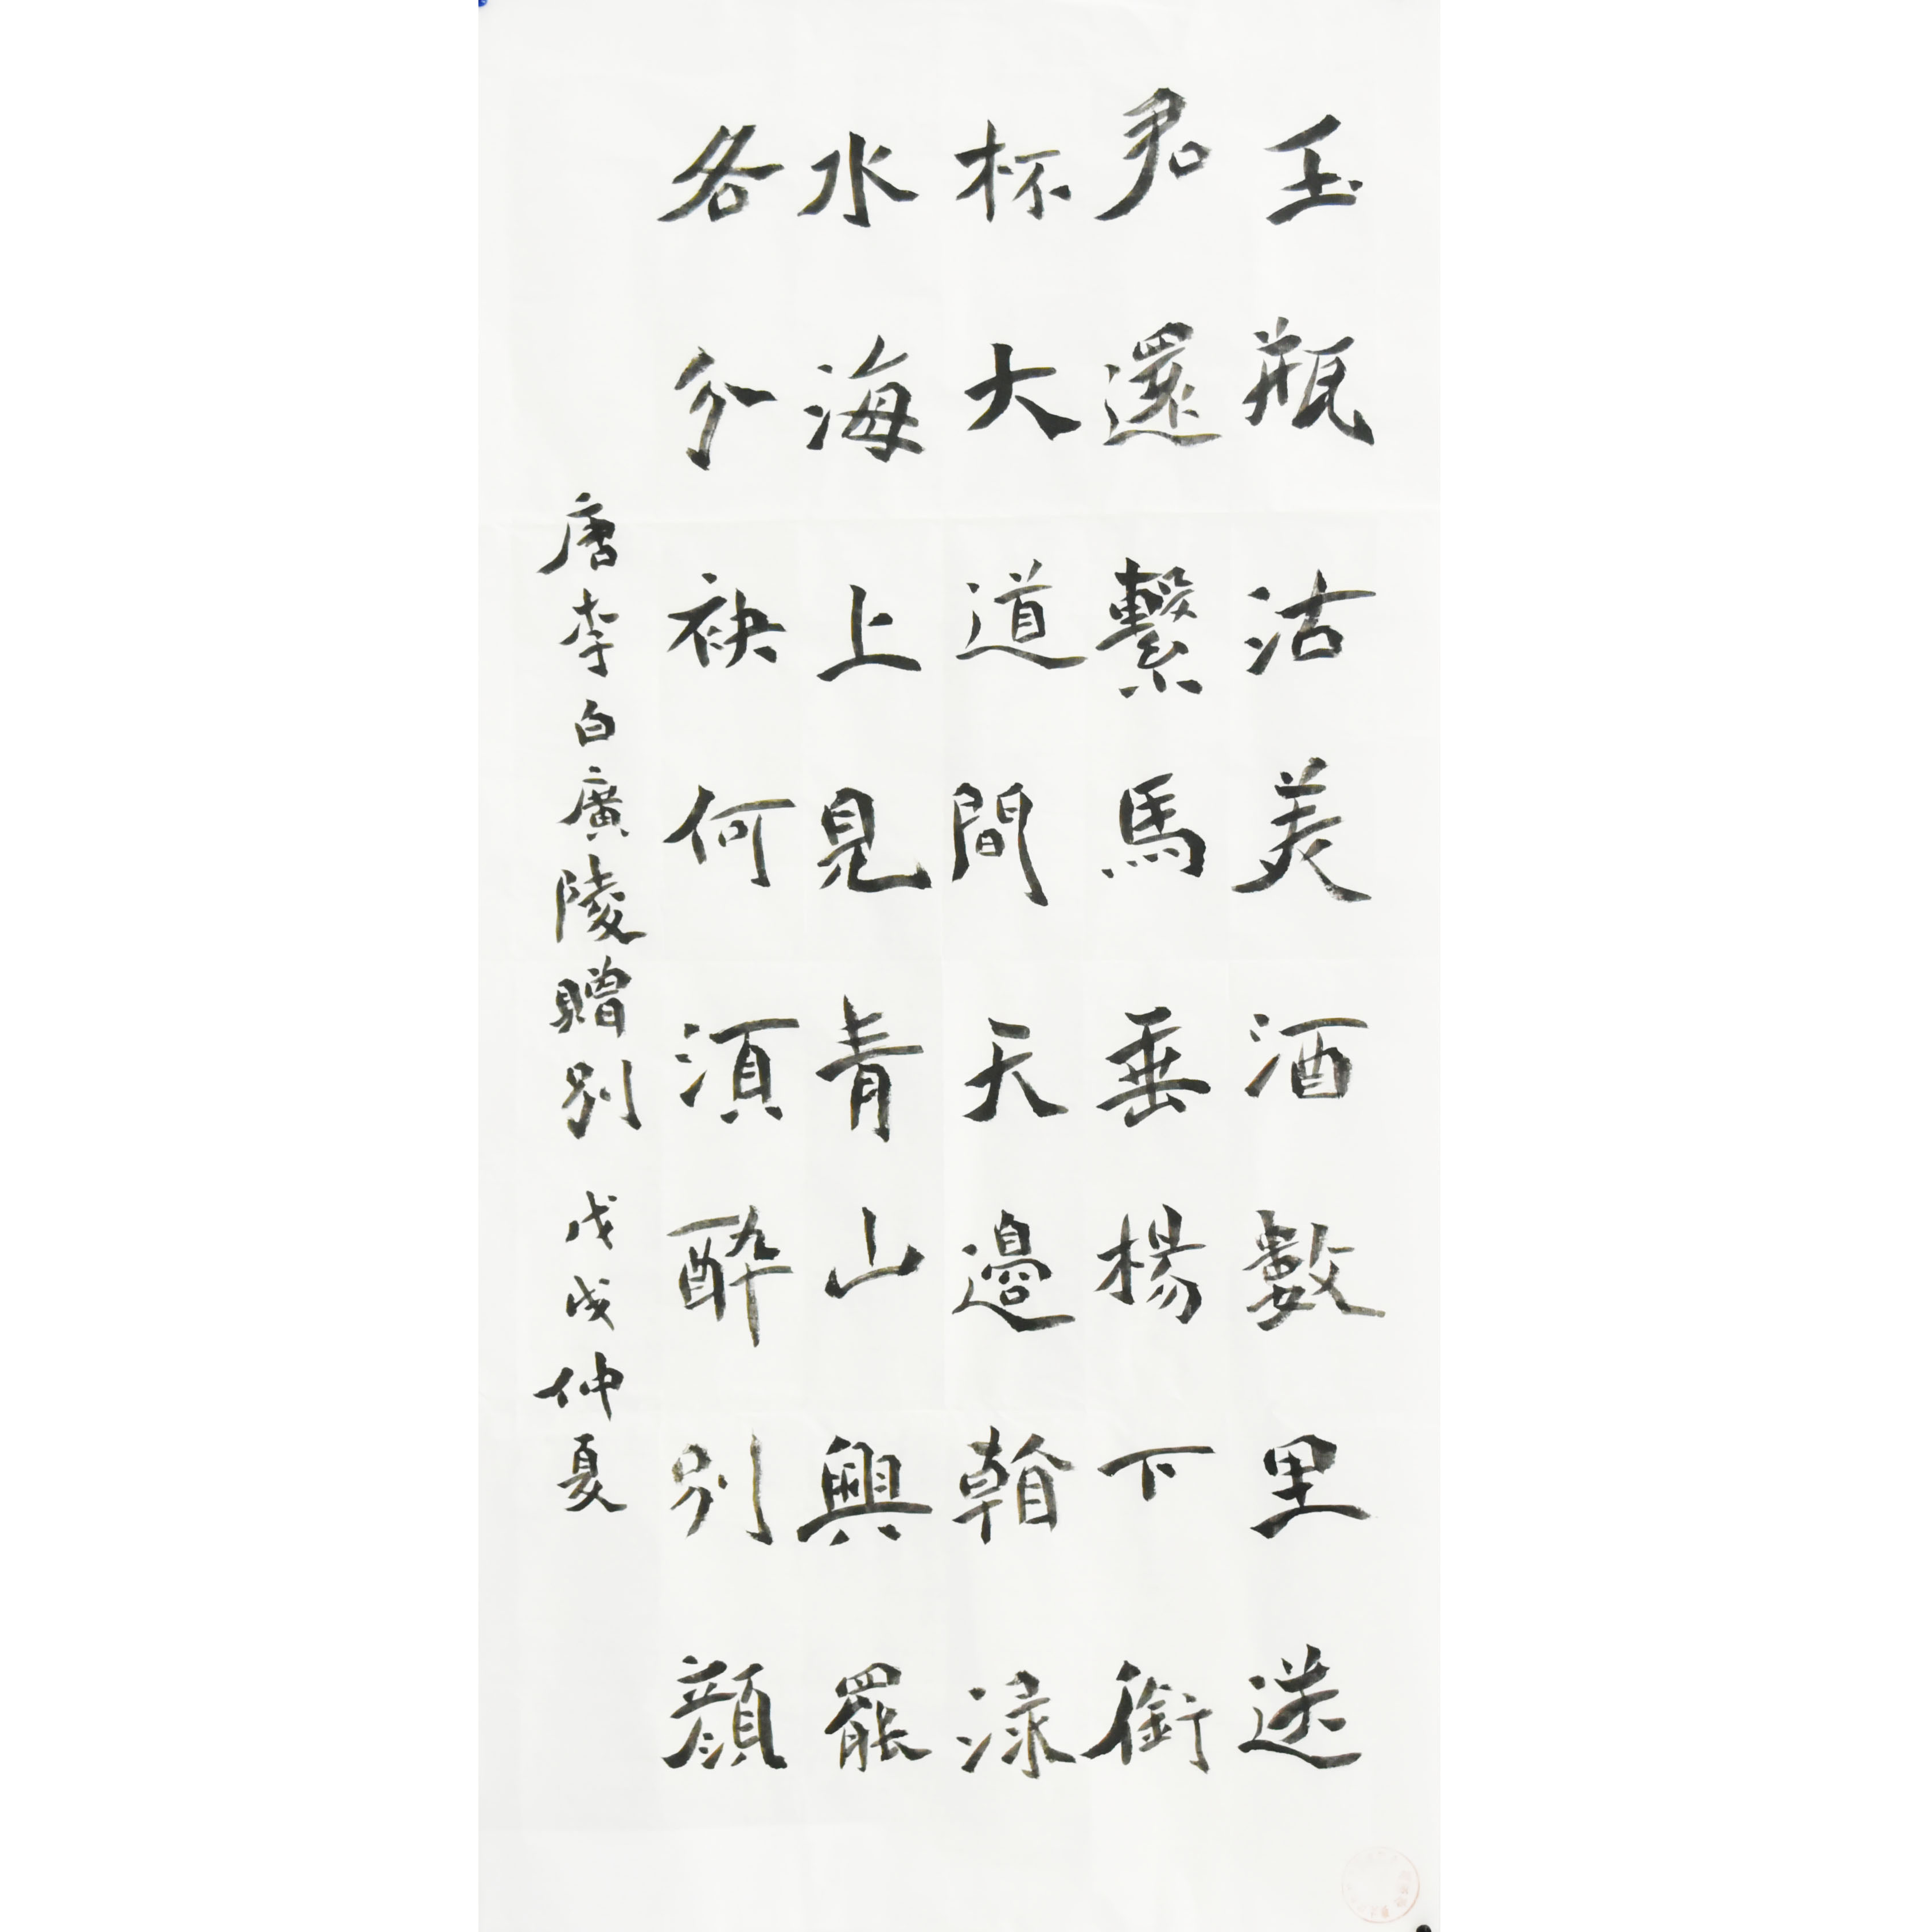 玉瓶沽美酒數里送
君還繫馬垂楊下銜
杯大道間天邊看渌
水海上見青山興罷
各分袂何須醉別顏
唐李白廣陵贈別 戊戌仲夏